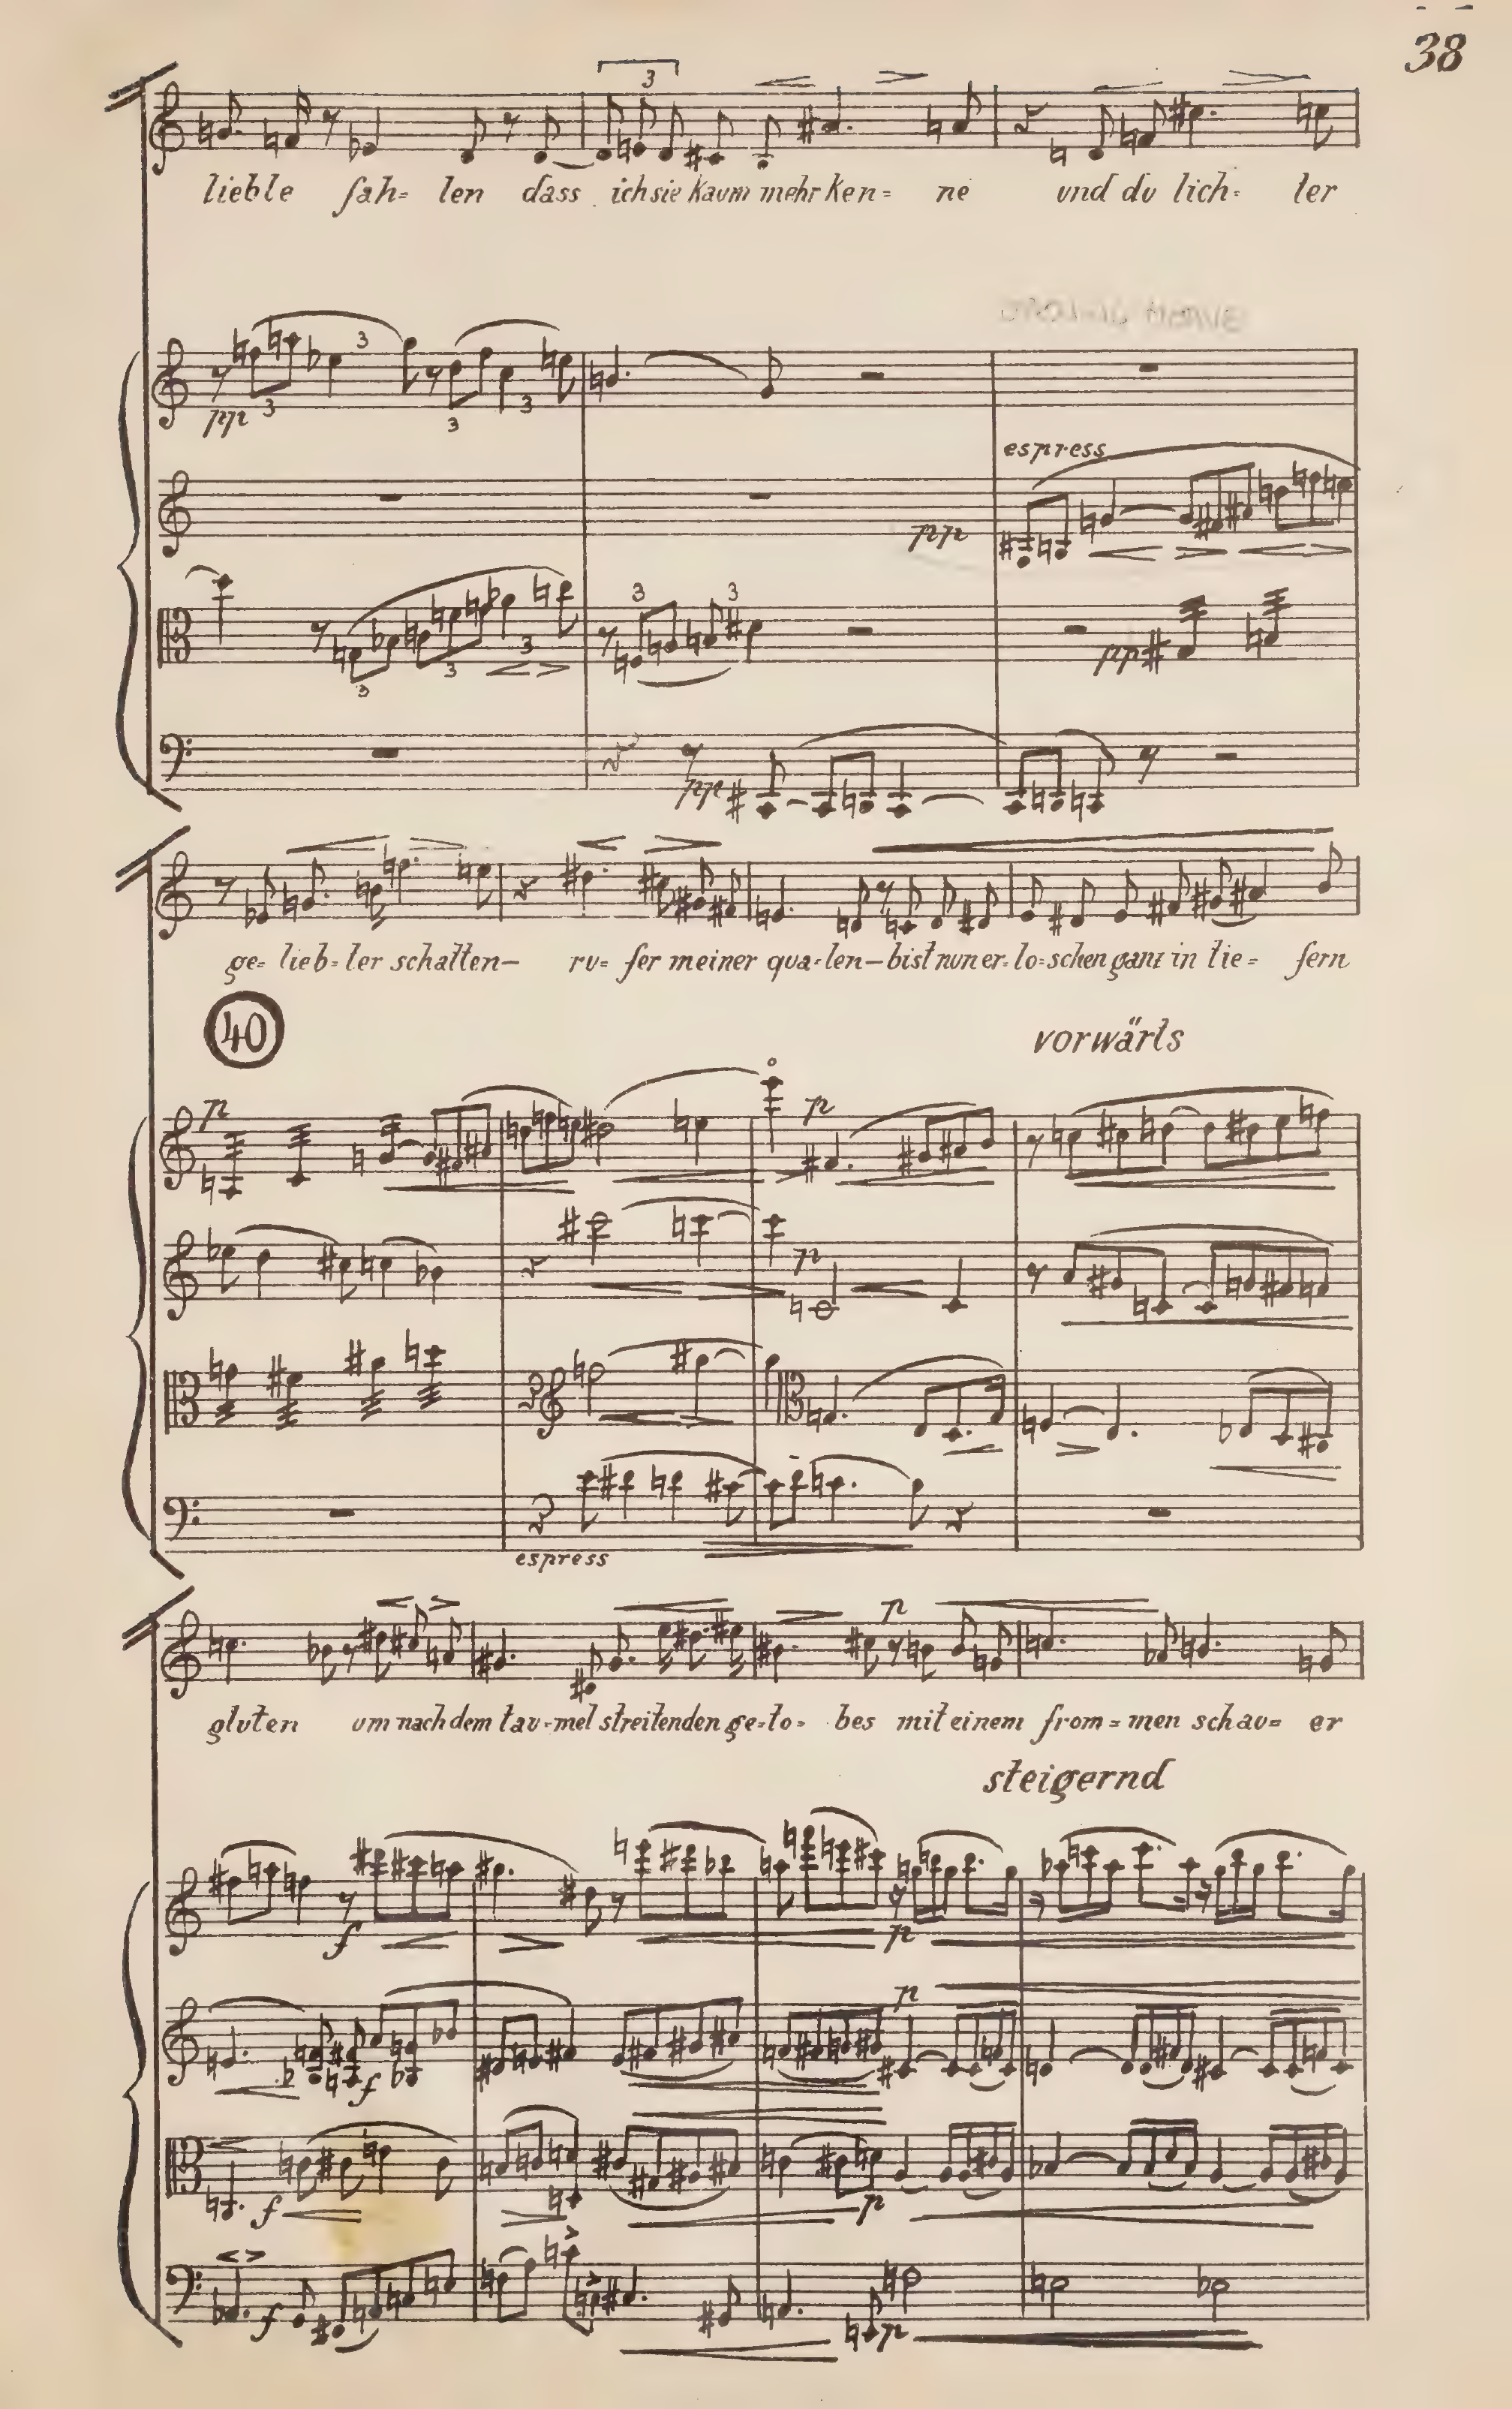 38
3
lieble fah= len dass ich sie kaum mehr ken= ne und du lich= ler
pp 3 3 3 3
espress
pp
3 3 3 3 3
pp
pp
ge= lieb= ler schatten— ru= fer meiner qua=len— bist nun er=lo=schen ganz in tie= fern
40 vorwärts
p p
p
espress
p
gluten um nach dem tau=mel streitenden ge=to= bes mit einem from= men schau= er
steigernd
f p
f p
f p
f p